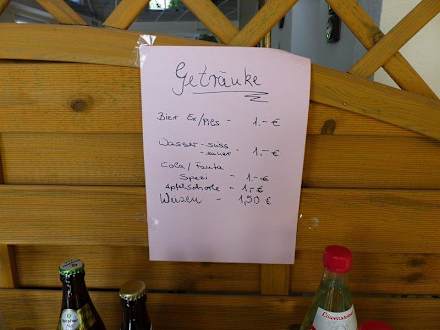 Getränke
Bier Ex/Pils - 1.- €
Wasser - süss
- sauer - 1.- €
Cola / Fanta
Spezi - 1.- €
Apfelschorle - 1.- €
Weizen - 1,50 €